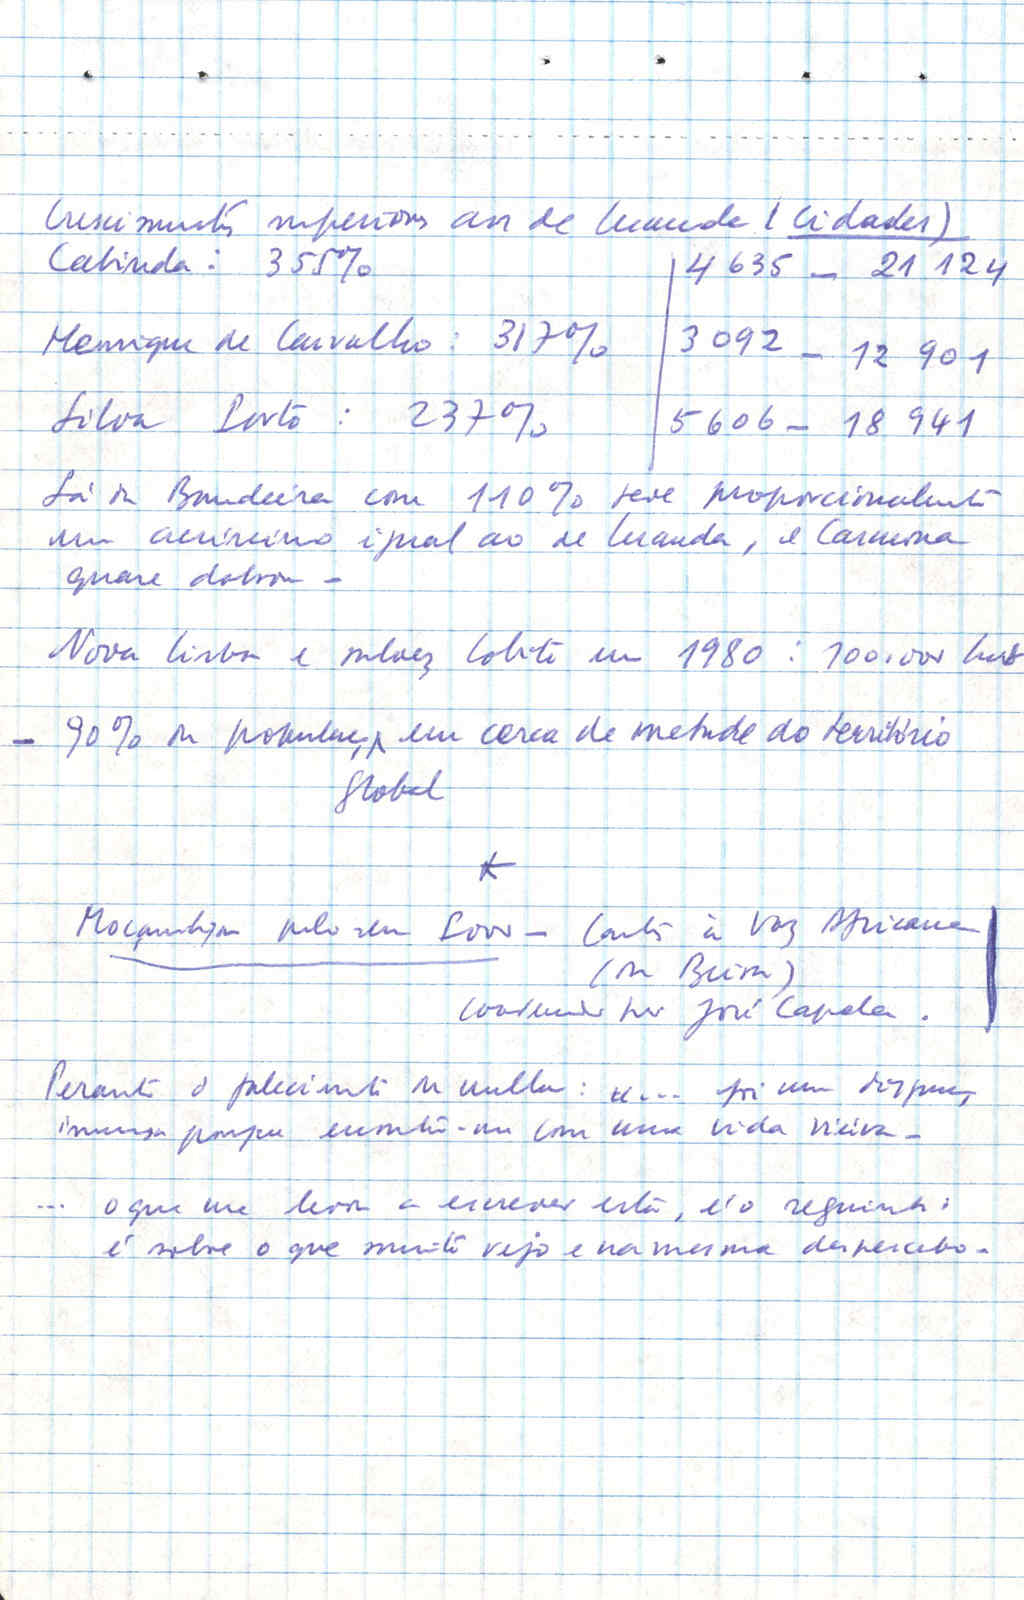 Crescimentos superiores aos de Luanda (Cidades)
Cabinda: 355% 4 635 – 21 124
Henrique de Carvalho: 317% 3 092 – 12 901
Silva Porto: 237% 5 606 – 18 941
Sá da Bandeira com 110% teve proporcionalmente
um acréscimo igual ao de Luanda, e Carmona
quase dobrou –
Nova Lisboa e talvez Lobito em 1980: 100.000 hab
– 90% da população em cerca de metade do território
global
*
Moçambique pelo seu Povo – Cartas à Voz Africana
(da Beira)
por José Capela.
Perante o falecimento da mulher: "... foi um
imensa porque com uma vida viúva –
... o que me levou a escrever esta, é o seguinte:
é sobre o que muito vejo e na mesma despercebo –